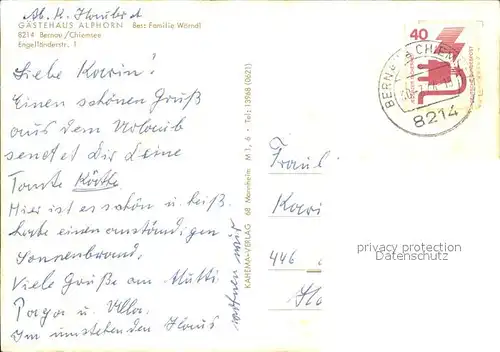 Ab. K. Haubold
GÄSTEHAUS ALPHORN Bes: Familie Wörndl
8214 Bernau/Chiemsee
Engelländerstr. 1
Liebe Karin!
Einen schönen Gruß
aus dem Urlaub
sendet Dir Deine
Tante Käthe
Hier ist es schön u. heiß.
habe einen anständigen
Sonnenbrand.
Viele Grüße an Mutti
Papa u. Ulla.
Im umstehenden Haus
wohnen wir
KAHEMA-VERLAG 68 Mannheim M 1, 6 · Tel.: 13968 (0621)
40
DEUTSCHE BUNDESPOST
BERNAU A CHIEM
8214
Fräul
Kari
446
privacy protection
Datenschutz